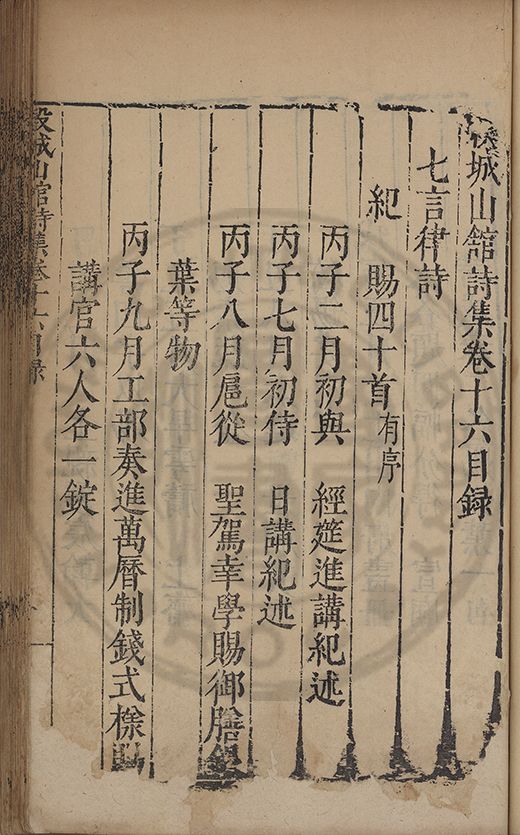 城山舘詩集卷十六目録
七言律詩
紀　賜四十首有序
丙子二月初與　經筵進講紀述
丙子七月初侍　日講紀述
丙子八月扈從　聖駕幸學賜御膳
葉等物
丙子九月工部奏進萬曆制錢式樣
講官六人各一錠
城山舘詩集卷十六目録